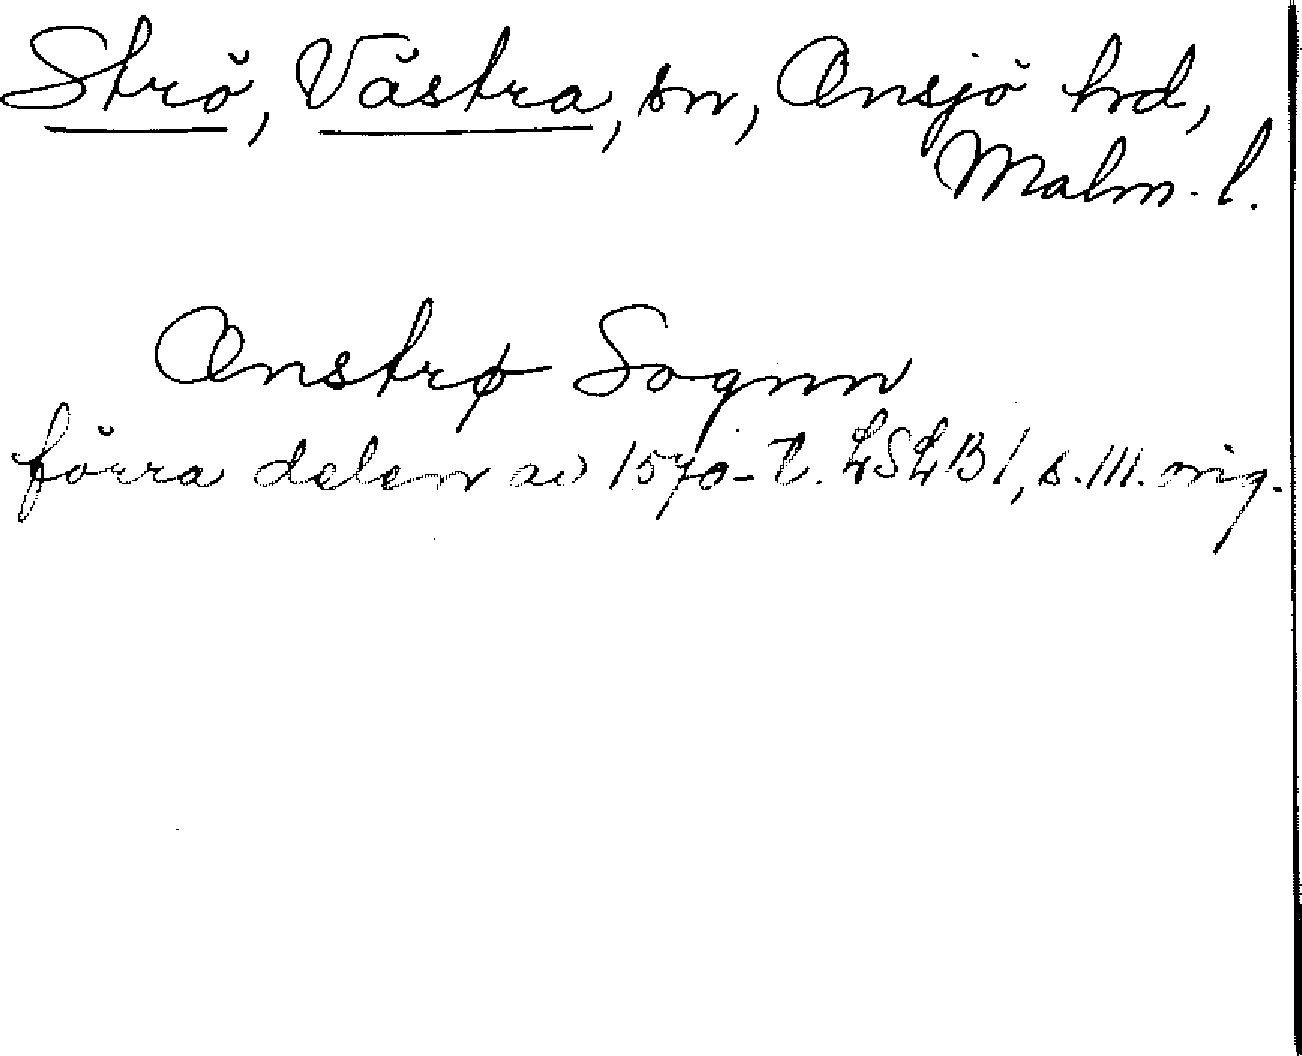 Strö, Västra, sn, Onsjö hrd,
Malm. l.
Onstrø Sognn
förra delen av 1570-t. LSLB 1, s. 111. orig.